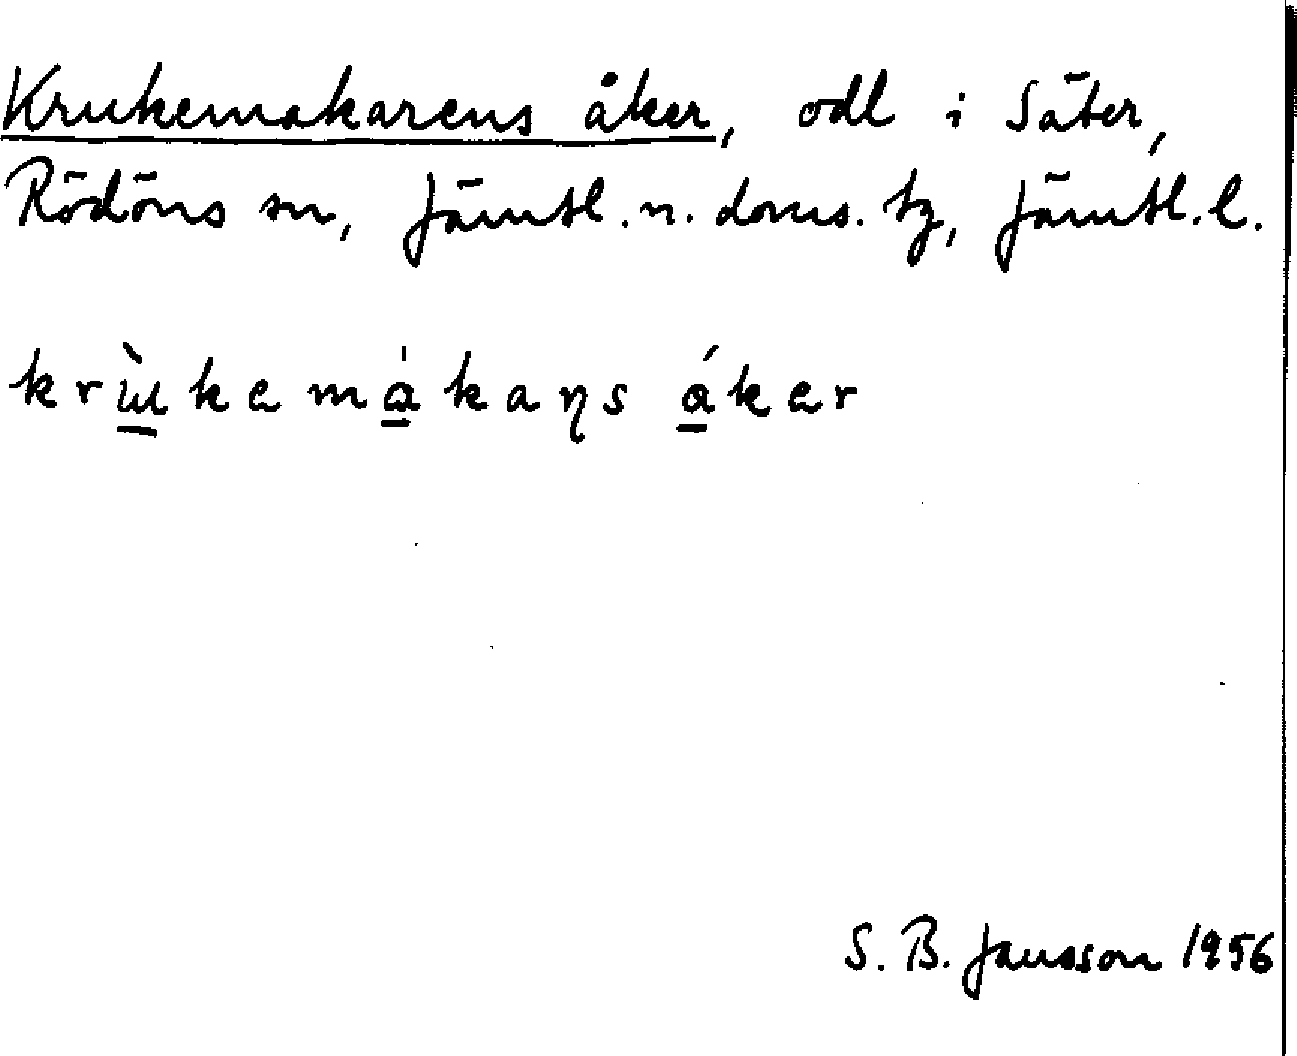 Krukemakarens åker, odl i Säter,
Rödöns sn, Jämtl. n. doms. tg, Jämtl. l.
krùkemàkaņs áker
S. B. Jansson 1956